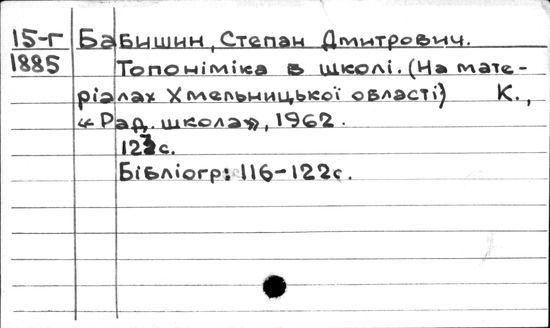 15-Г Бабишин, Степан Дмитрович.
1885 Топоніміка в школі. (На мате-
ріалах Хмельницької області) К.,
«Рад. школа», 1962.
123с.
Бібліогр: 116-122с.